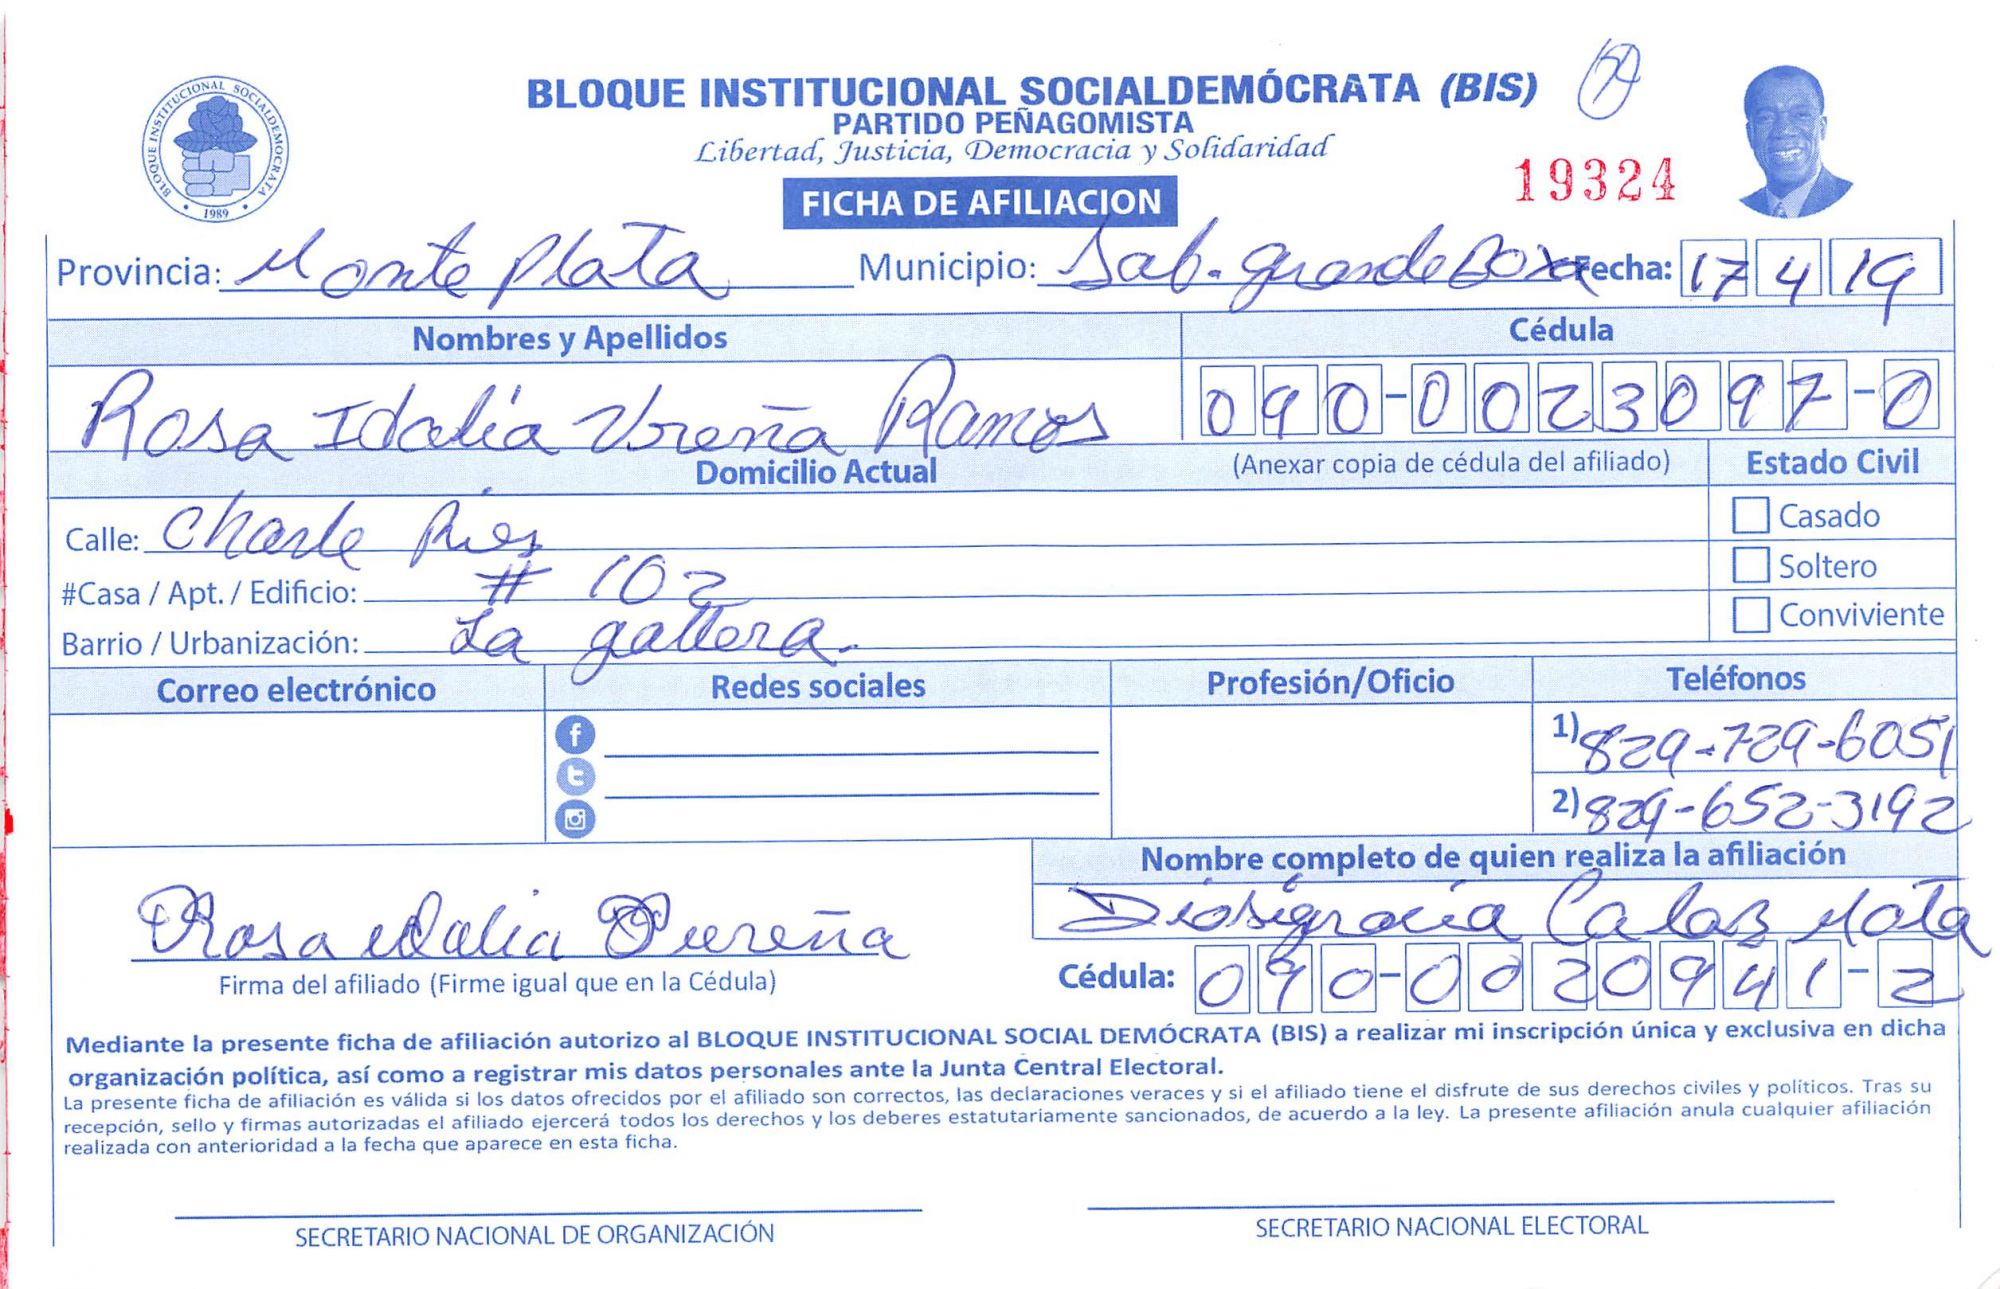 BLOQUE INSTITUCIONAL SOCIALDEMÓCRATA (BIS)
PARTIDO PEÑAGOMISTA
Libertad, Justicia, Democracia y Solidaridad
BLOQUE INSTITUCIONAL SOCIALDEMOCRATA
1989
19324
FICHA DE AFILIACION
Provincia: Monte Plata Municipio: Sab. grande Boya Fecha: 17 4 19
Nombres y Apellidos Cédula
Rosa Idalia Ureña Ramos 090-0023097-0
Domicilio Actual (Anexar copia de cédula del afiliado) Estado Civil
Calle: Charle Pies Casado
#Casa / Apt. / Edificio: # 102 Soltero
Barrio / Urbanización: La gallera. Conviviente
Correo electrónico Redes sociales Profesión/Oficio Teléfonos
1) 829-729-6051
2) 829-652-3192
Nombre completo de quien realiza la afiliación
Rosa idalia Dureña Diosigracia Calas Mota
Firma del afiliado (Firme igual que en la Cédula) Cédula: 090-0020941-2
Mediante la presente ficha de afiliación autorizo al BLOQUE INSTITUCIONAL SOCIAL DEMÓCRATA (BIS) a realizar mi inscripción única y exclusiva en dicha
organización política, así como a registrar mis datos personales ante la Junta Central Electoral.
La presente ficha de afiliación es válida si los datos ofrecidos por el afiliado son correctos, las declaraciones veraces y si el afiliado tiene el disfrute de sus derechos civiles y políticos. Tras su
recepción, sello y firmas autorizadas el afiliado ejercerá todos los derechos y los deberes estatutariamente sancionados, de acuerdo a la ley. La presente afiliación anula cualquier afiliación
realizada con anterioridad a la fecha que aparece en esta ficha.
SECRETARIO NACIONAL DE ORGANIZACIÓN SECRETARIO NACIONAL ELECTORAL